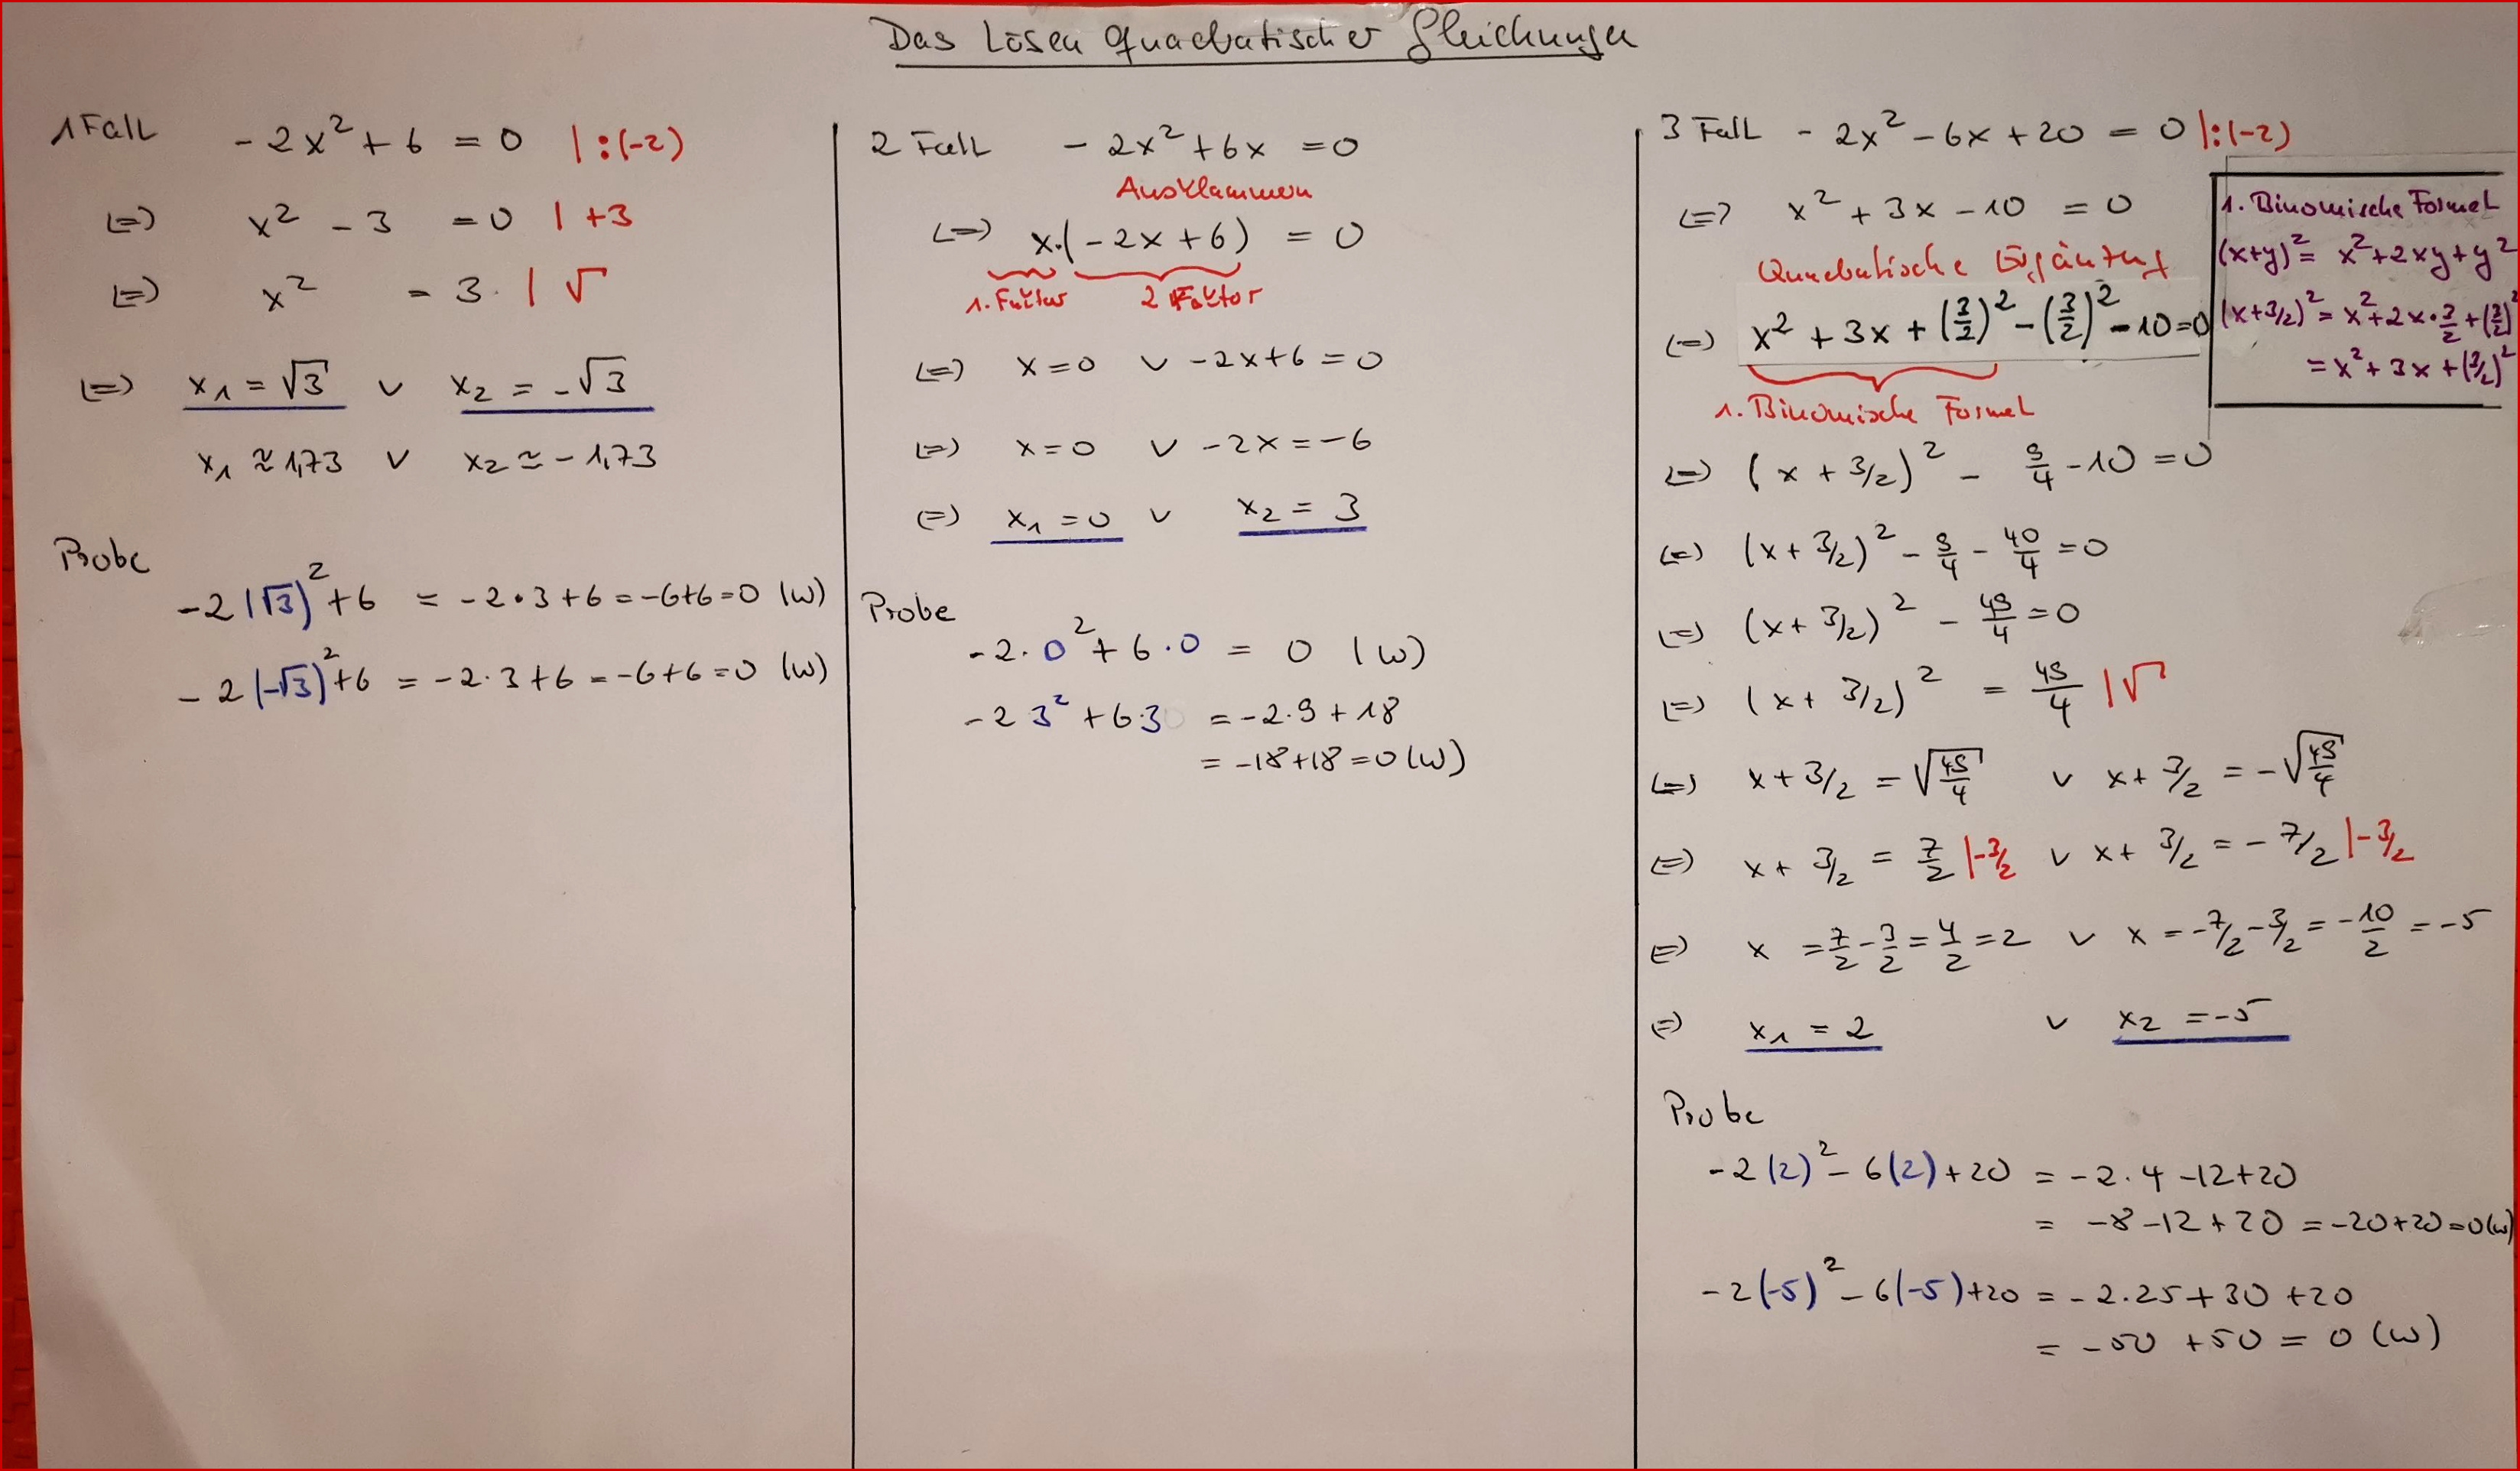 Das Lösen quadratischer Gleichungen
1 Fall -2x² + 6 = 0 | :(-2)
(=) x² - 3 = 0 | +3
(=) x² = 3 | √
(=) x₁ = √3 ∨ x₂ = -√3
x₁ ≈ 1,73 ∨ x₂ ≈ -1,73
Probe
-2(√3)² + 6 = -2·3+6 = -6+6 = 0 (w)
-2(-√3)² + 6 = -2·3+6 = -6+6 = 0 (w)
2 Fall -2x² + 6x = 0
Ausklammern
(=) x·(-2x + 6) = 0
1. Faktor 2 Faktor
(=) x = 0 ∨ -2x+6 = 0
(=) x = 0 ∨ -2x = -6
(=) x₁ = 0 ∨ x₂ = 3
Probe
-2·0² + 6·0 = 0 (w)
-2 3² + 6·3 = -2·9 + 18
= -18+18 = 0 (w)
3 Fall -2x² - 6x + 20 = 0 |:(-2)
(=) x² + 3x - 10 = 0
Quadratische Ergänzung
(=) x² + 3x + (3/2)² - (3/2)² - 10 = 0
1. Binomische Formel
(=) (x + 3/2)² - 9/4 - 10 = 0
(=) (x + 3/2)² - 9/4 - 40/4 = 0
(=) (x + 3/2)² - 49/4 = 0
(=) (x + 3/2)² = 49/4 | √
(=) x + 3/2 = √49/4 ∨ x + 3/2 = -√49/4
(=) x + 3/2 = 7/2 |-3/2 ∨ x + 3/2 = -7/2 |-3/2
(=) x = 7/2 - 3/2 = 4/2 = 2 ∨ x = -7/2 - 3/2 = -10/2 = -5
(=) x₁ = 2 ∨ x₂ = -5
Probe
-2(2)² - 6(2) + 20 = -2·4 - 12 + 20
= -8 - 12 + 20 = -20+20 = 0 (w)
-2(-5)² - 6(-5) + 20 = -2·25 + 30 + 20
= -50 + 50 = 0 (w)
1. Binomische Formel
(x+y)² = x² + 2xy + y²
(x+3/2)² = x² + 2x·3/2 + (3/2)²
= x² + 3x + (3/2)²